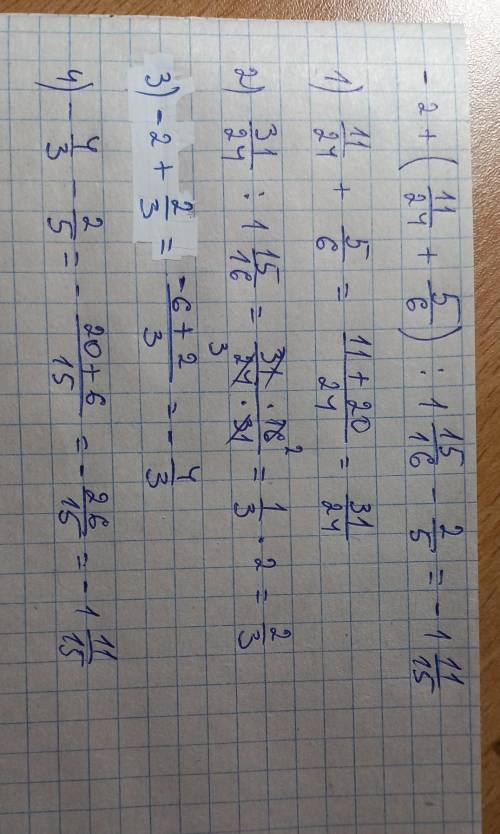 -2 + (11/24 + 5/6) : 1 15/16 - 2/5 = -1 11/15
1) 11/24 + 5/6 = (11 + 20)/24 = 31/24
2) 31/24 : 1 15/16 = (31 · 16 2)/(3 24 · 31) = 1/3 · 2 = 2/3
3) -2 + 2/3 = (-6 + 2)/3 = -4/3
4) -4/3 - 2/5 = -(20 + 6)/15 = -26/15 = -1 11/15